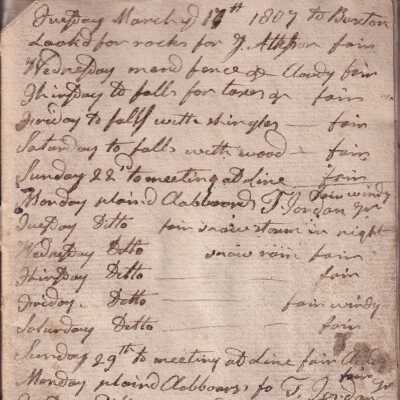 Tuesday March 17th 1807 to Buxton
Lookd for rocks for J. Atkson fair
Wednesday mend fence & Cloudy fair
Thirsday to falls for taxes & fair
Friday to falls with shingles fair
Saturday to falls with wood fair
Sunday 22nd to meeting at line fair
Monday plaind Clabboards T. Jordan Jnr fair windy
Tuesday Ditto fair snow storm in night
Wednesday Ditto snow rain fair
Thirsday Ditto fair
Friday. Ditto fair windy
Saturday Ditto fair
Sunday 29th to meeting at line fair
Monday plaind Clabboards fo T. Jordan Jr fair